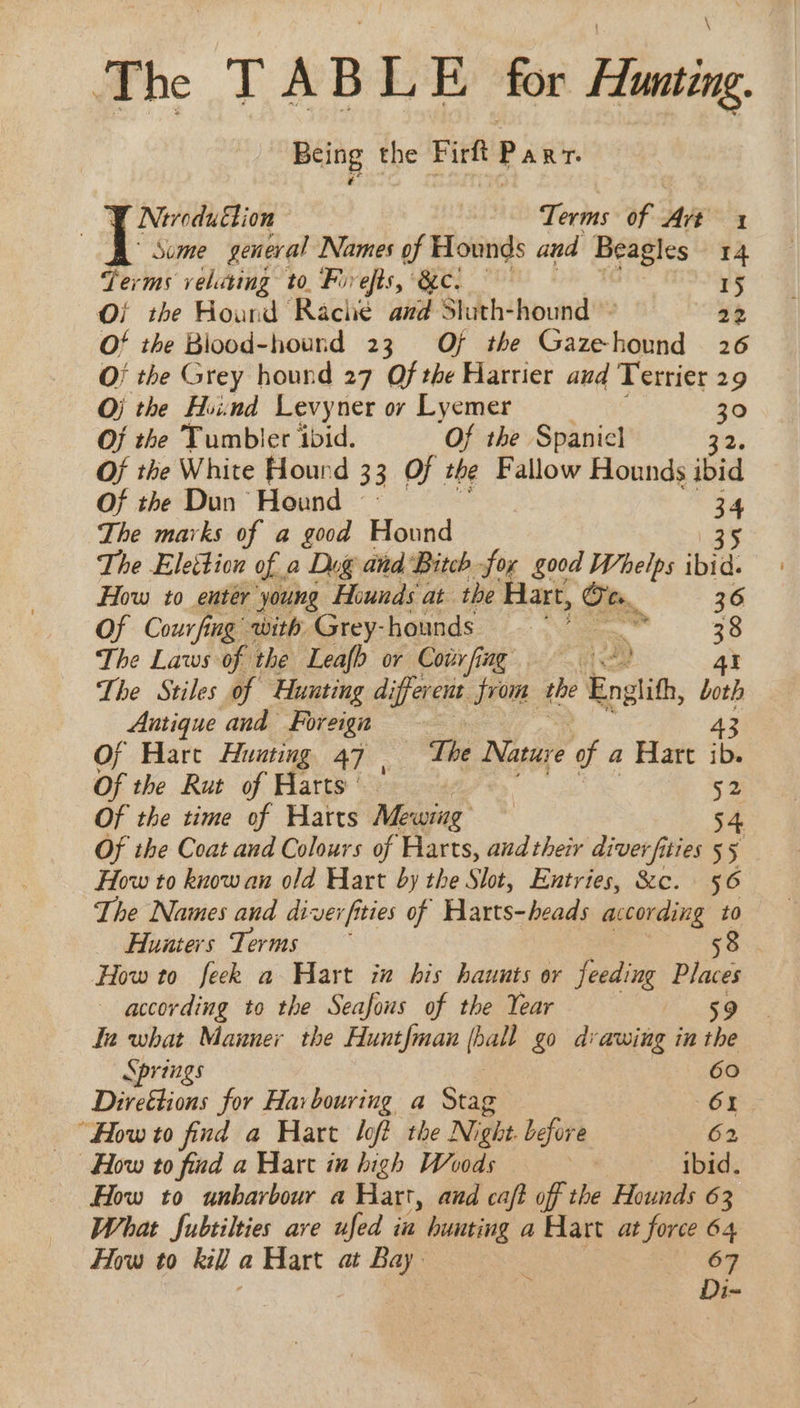 The TABLE for Hunting.
Being the Firſt PART.
INtroduction Terms of Art 1
Some general Names of Hounds and Beagles 14
Terms relating to Foreſts, &c. 15
Of the Hound Rache and Sluth-hound 22
Of the Blood-hound 23 Of the Gaze-hound 26
Of the Grey hound 27 Of the Harrier and Terrier 29
Of the Hound Levyner or Lyemer 30
Of the Tumbler ibid. Of the Spaniel 32.
Of the White Hound 33 Of the Fallow Hounds ibid
Of the Dun Hound 34
The marks of a good Hound 35
The Election of a Dog and Bitch for good Whelps ibid.
How to enter young Hounds at the Hart, &c. 36
Of Courſing with Grey-hounds 38
The Laws of the Leaſh or Courſing 41
The Stiles of Hunting different from the Engliſh, both
Antique and Foreign 43
Of Hart Hunting 47 The Nature of a Hart ib.
Of the Rut of Harts 52
Of the time of Harts Mewing 54
Of the Coat and Colours of Harts, and their diverſities 55
How to know an old Hart by the Slot, Entries, &c. 56
The Names and diverſities of Harts-heads according to
Hunters Terms 58
How to ſeek a Hart in his haunts or feeding Places
according to the Seaſons of the Year 59
In what Manner the Huntſman ſhall go drawing in the
Springs 60
Directions for Harbouring a Stag 61
How to find a Hart loſt the Night before 62
How to find a Hart in high Woods ibid.
How to unharbour a Hart, and caſt off the Hounds 63
What ſubtilties are uſed in hunting a Hart at force 64
How to kill a Hart at Bay 67
Di-